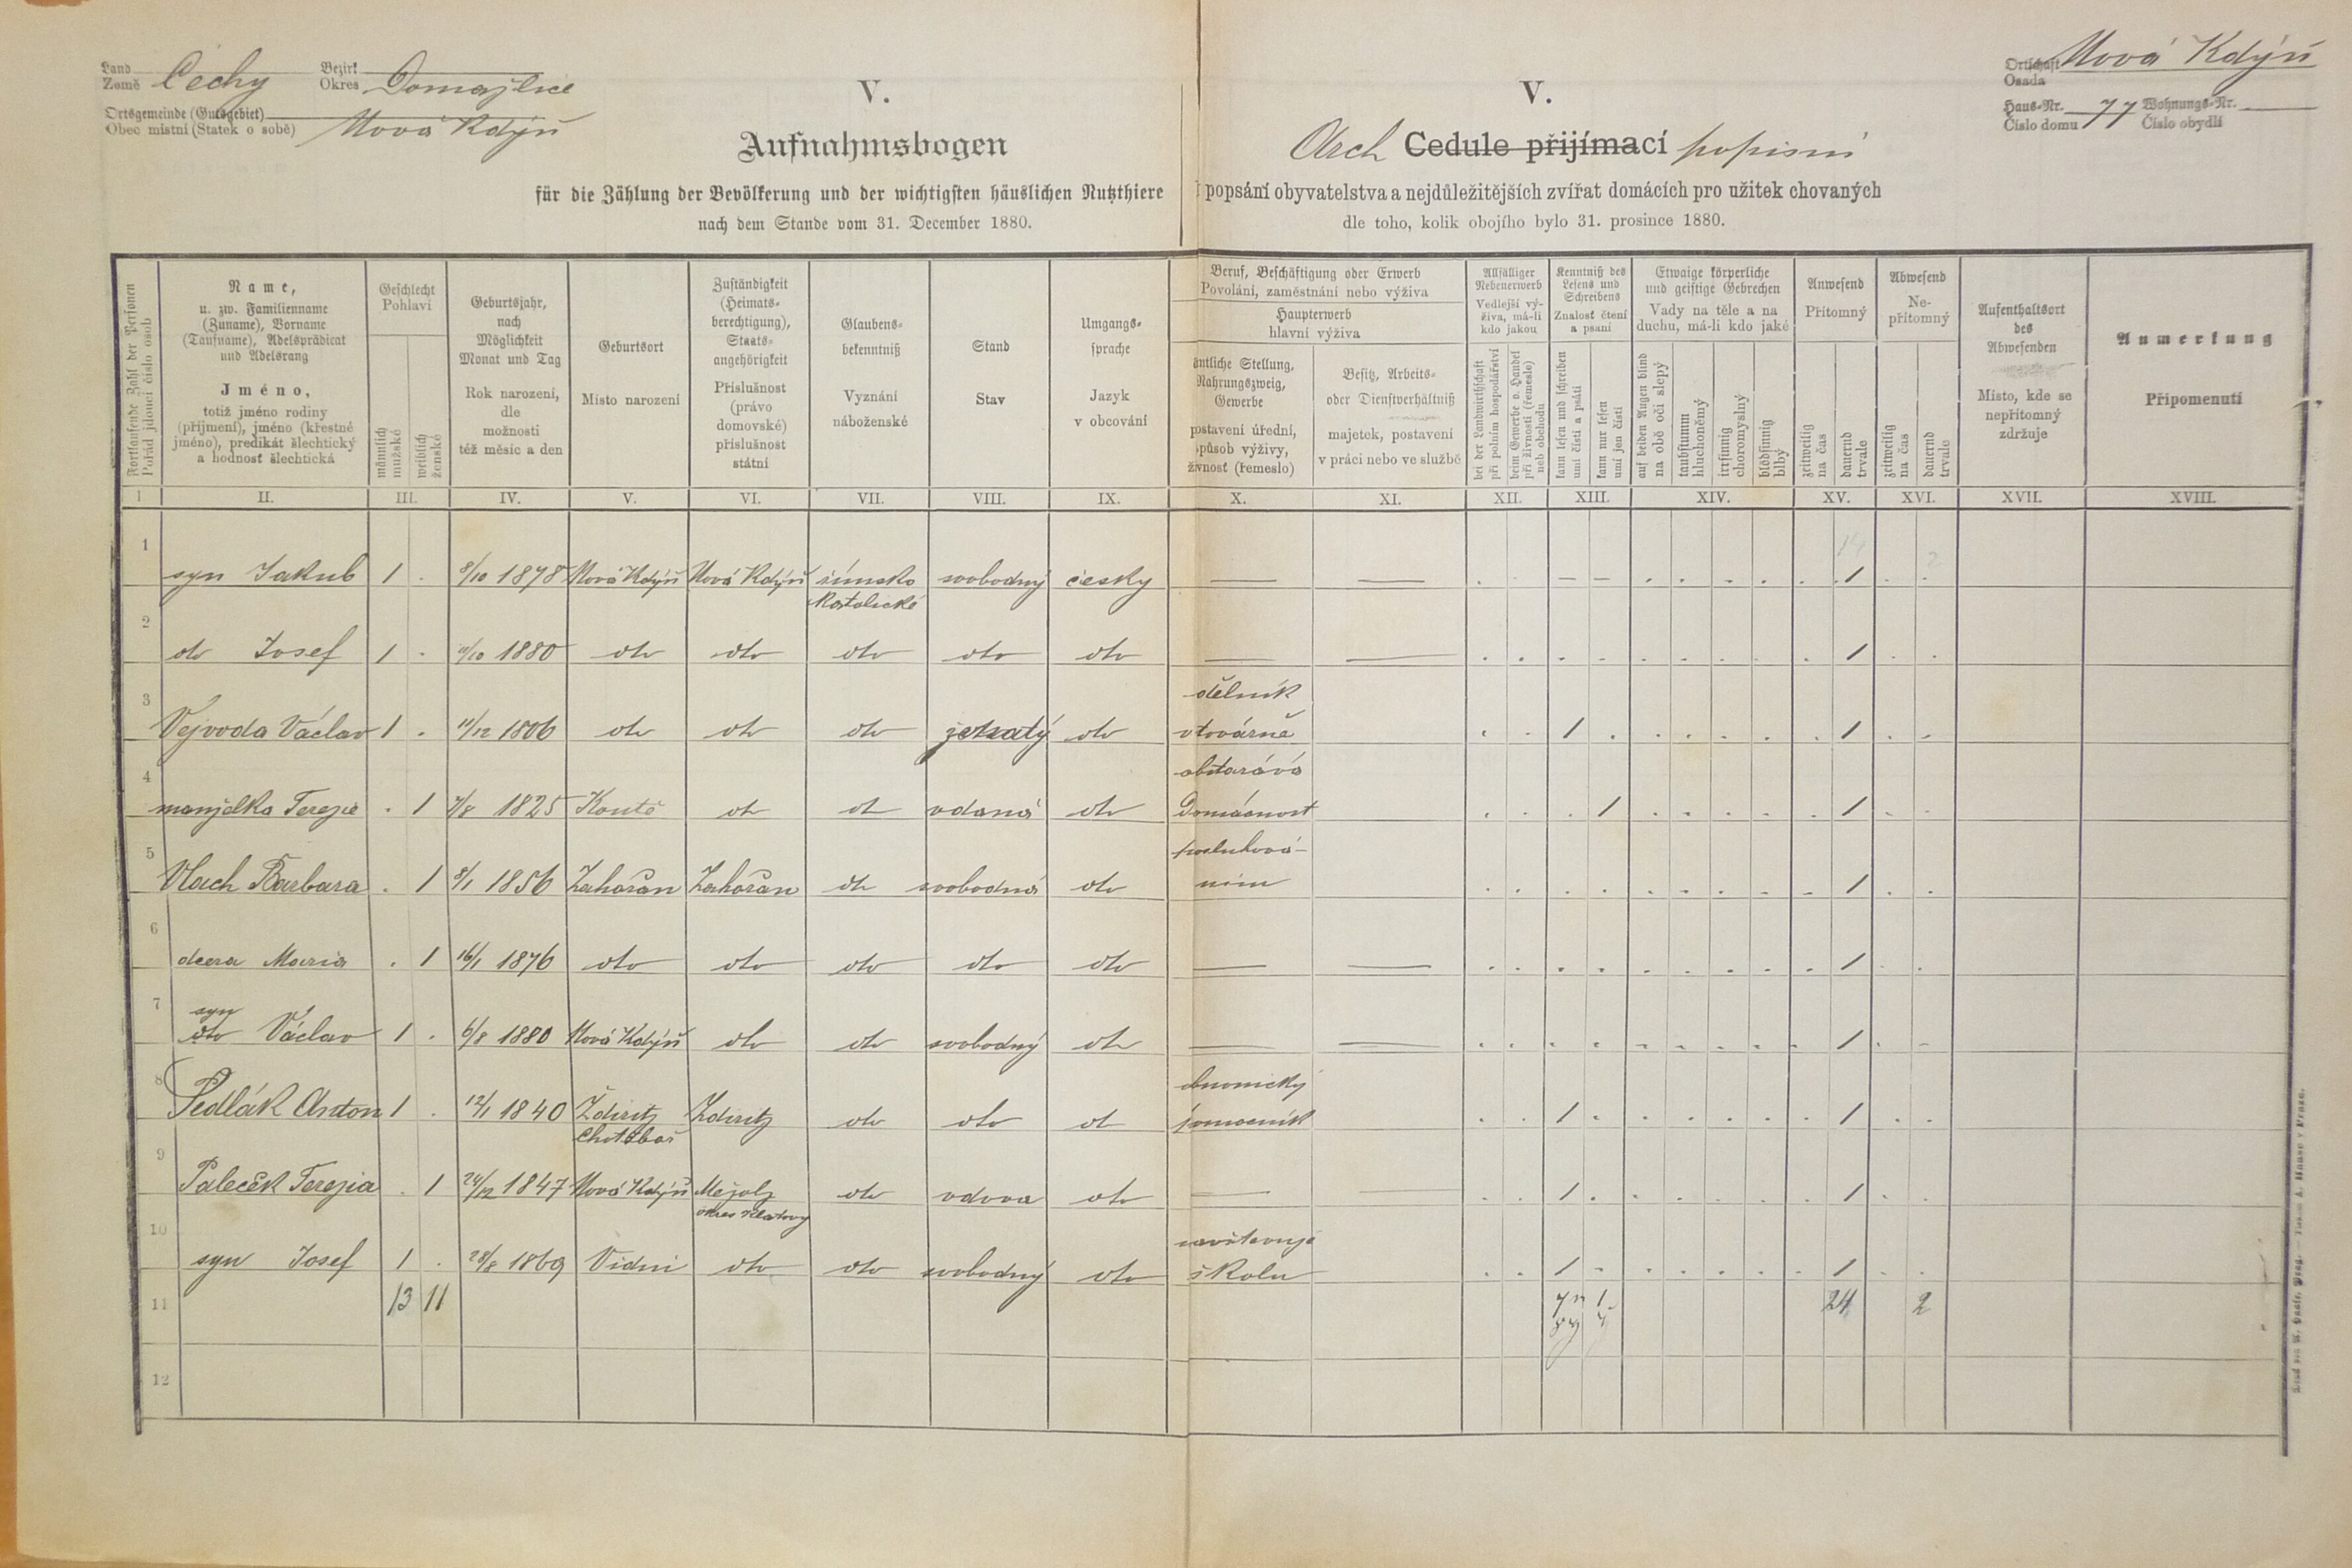 Land
Země Čechy
Bezirk
Okres Domažlice
Ortsgemeinde (Gutsgebiet)
Obec místní (Statek o sobě) Nová Kdýň
V.
Aufnahmsbogen
für die Zählung der Bevölkerung und der wichtigsten häuslichen Nutzthiere
nach dem Stande vom 31. December 1880.
V.
Arch Cedule přijímací popisní
popsání obyvatelstva a nejdůležitějších zvířat domácích pro užitek chovaných
dle toho, kolik obojího bylo 31. prosince 1880.
Ortschaft
Osada Nová Kdýň
Haus-Nr.
Číslo domu 77
Wohnungs-Nr.
Číslo obydlí
Fortlaufende Zahl der Personen
Pořád jdoucí číslo osob
Name,
u. zw. Familienname
(Zuname), Vorname
(Taufname), Adelsprädicat
und Adelsrang
Jméno,
totiž jméno rodiny
(příjmení), jméno (křestné
jméno), predikát šlechtický
a hodnost šlechtická
Geschlecht
Pohlaví
männlich
mužské
weiblich
ženské
Geburtsjahr,
nach
Möglichkeit
Monat und Tag
Rok narození,
dle
možnosti
též měsíc a den
Geburtsort
Místo narození
Zuständigkeit
(Heimats-
berechtigung),
Staats-
angehörigkeit
Příslušnost
(právo
domovské)
příslušnost
státní
Glaubens-
bekenntniß
Vyznání
náboženské
Stand
Stav
Umgangs-
sprache
Jazyk
v obcování
Beruf, Beschäftigung oder Erwerb
Povolání, zaměstnání nebo výživa
Haupterwerb
hlavní výživa
ämtliche Stellung,
Nahrungszweig,
Gewerbe
postavení úřední,
způsob výživy,
živnost (řemeslo)
Besitz, Arbeits-
oder Dienstverhältniß
majetek, postavení
v práci nebo ve službě
Allfälliger
Nebenerwerb
Vedlejší vý-
živa, má-li
kdo jakou
bei der Landwirthschaft
při polním hospodářství
beim Gewerbe o. Handel
při živnosti (řemesle)
neb obchodu
Kenntniß des
Lesens und
Schreibens
Znalost čtení
a psaní
kann lesen und schreiben
umí čísti a psáti
kann nur lesen
umí jen čísti
Etwaige körperliche
und geistige Gebrechen
Vady na těle a na
duchu, má-li kdo jaké
auf beiden Augen blind
na obě oči slepý
taubstumm
hluchoněmý
irrsinnig
choromyslný
blödsinnig
blbý
Anwesend
Přítomný
zeitweilig
na čas
dauernd
trvale
Abwesend
Ne-
přítomný
zeitweilig
na čas
dauernd
trvale
Aufenthaltsort
des
Abwesenden
Místo, kde se
nepřítomný
zdržuje
Anmerkung
Připomenutí
I II. III. IV. V. VI. VII. VIII. IX. X. XI. XII. XIII. XIV. XV. XVI. XVII. XVIII.
14 2
1 syn Jakub 1 . 8/10 1878 Nová Kdýň Nová Kdýň římsko svobodný česky — — . . — — . . . . . 1 . .
katolické
2 do Josef 1 . 11/10 1880 do do do do do — — . . . . . . . . . 1 . .
dělník
3 Vejvoda Václav 1 . 11/12 1806 do do do ženatý do v továrně . . 1 . . . . . . 1 . .
obstarává
4 manželka Terezie . 1 7/8 1825 Koutě do do vdaná do Domácnost . . . 1 . . . . . 1 . .
posluhová-
5 Vlach Barbara . 1 8/1 1856 Zahořan Zahořan do svobodná do ním . . . . . . . . . 1 . .
6 dcera Maria . 1 16/1 1876 do do do do do — — . . . . . . . . . 1 . .
syn
7 do Václav 1 . 6/8 1880 Nová Kdýň do do svobodný do — — . . . . . . . . . 1 . .
8 Sedlák Anton 1 . 12/1 1840 Ždiritz Zdiritz do do do pomocník . . 1 . . . . . . 1 . .
Chotěboř
9 Paleček Terezia . 1 24/12 1847 Nová Kdýň Mezolz do vdova do — — . . 1 . . . . . . 1 . .
okres Klatovy
navštěvuje
10 syn Josef 1 . 28/8 1869 Vídni do do svobodný do školu . . 1 . . . . . . 1 . .
11 13 11 7 1 24 2
12